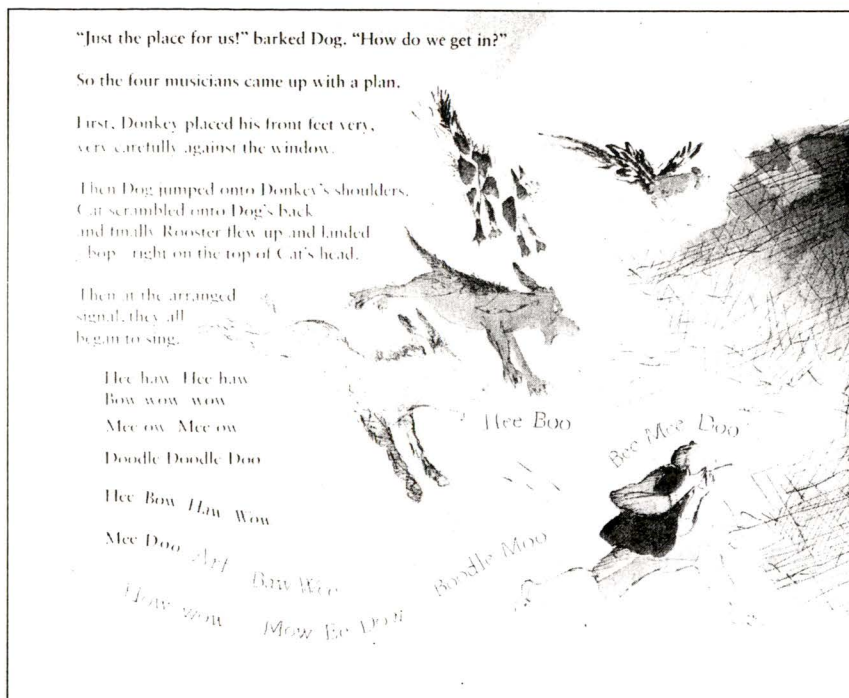 “Just the place for us!” barked Dog. “How do we get in?”
So the four musicians came up with a plan.
First, Donkey placed his front feet very,
very carefully against the window.
Then Dog jumped onto Donkey’s shoulders.
Cat scrambled onto Dog’s back
and finally Rooster flew up and landed
bop right on the top of Cat’s head.
Then at the arranged
signal, they all
began to sing.
Hee haw Hee haw
Bow wow wow
Mee ow Mee ow
Doodle Doodle Doo
Hee Bow Haw Wow
Mee Doo Arf Baw Wee
How wow Mow Ee Dow Boodle Moo
Hee Boo
Bee Mee Doo